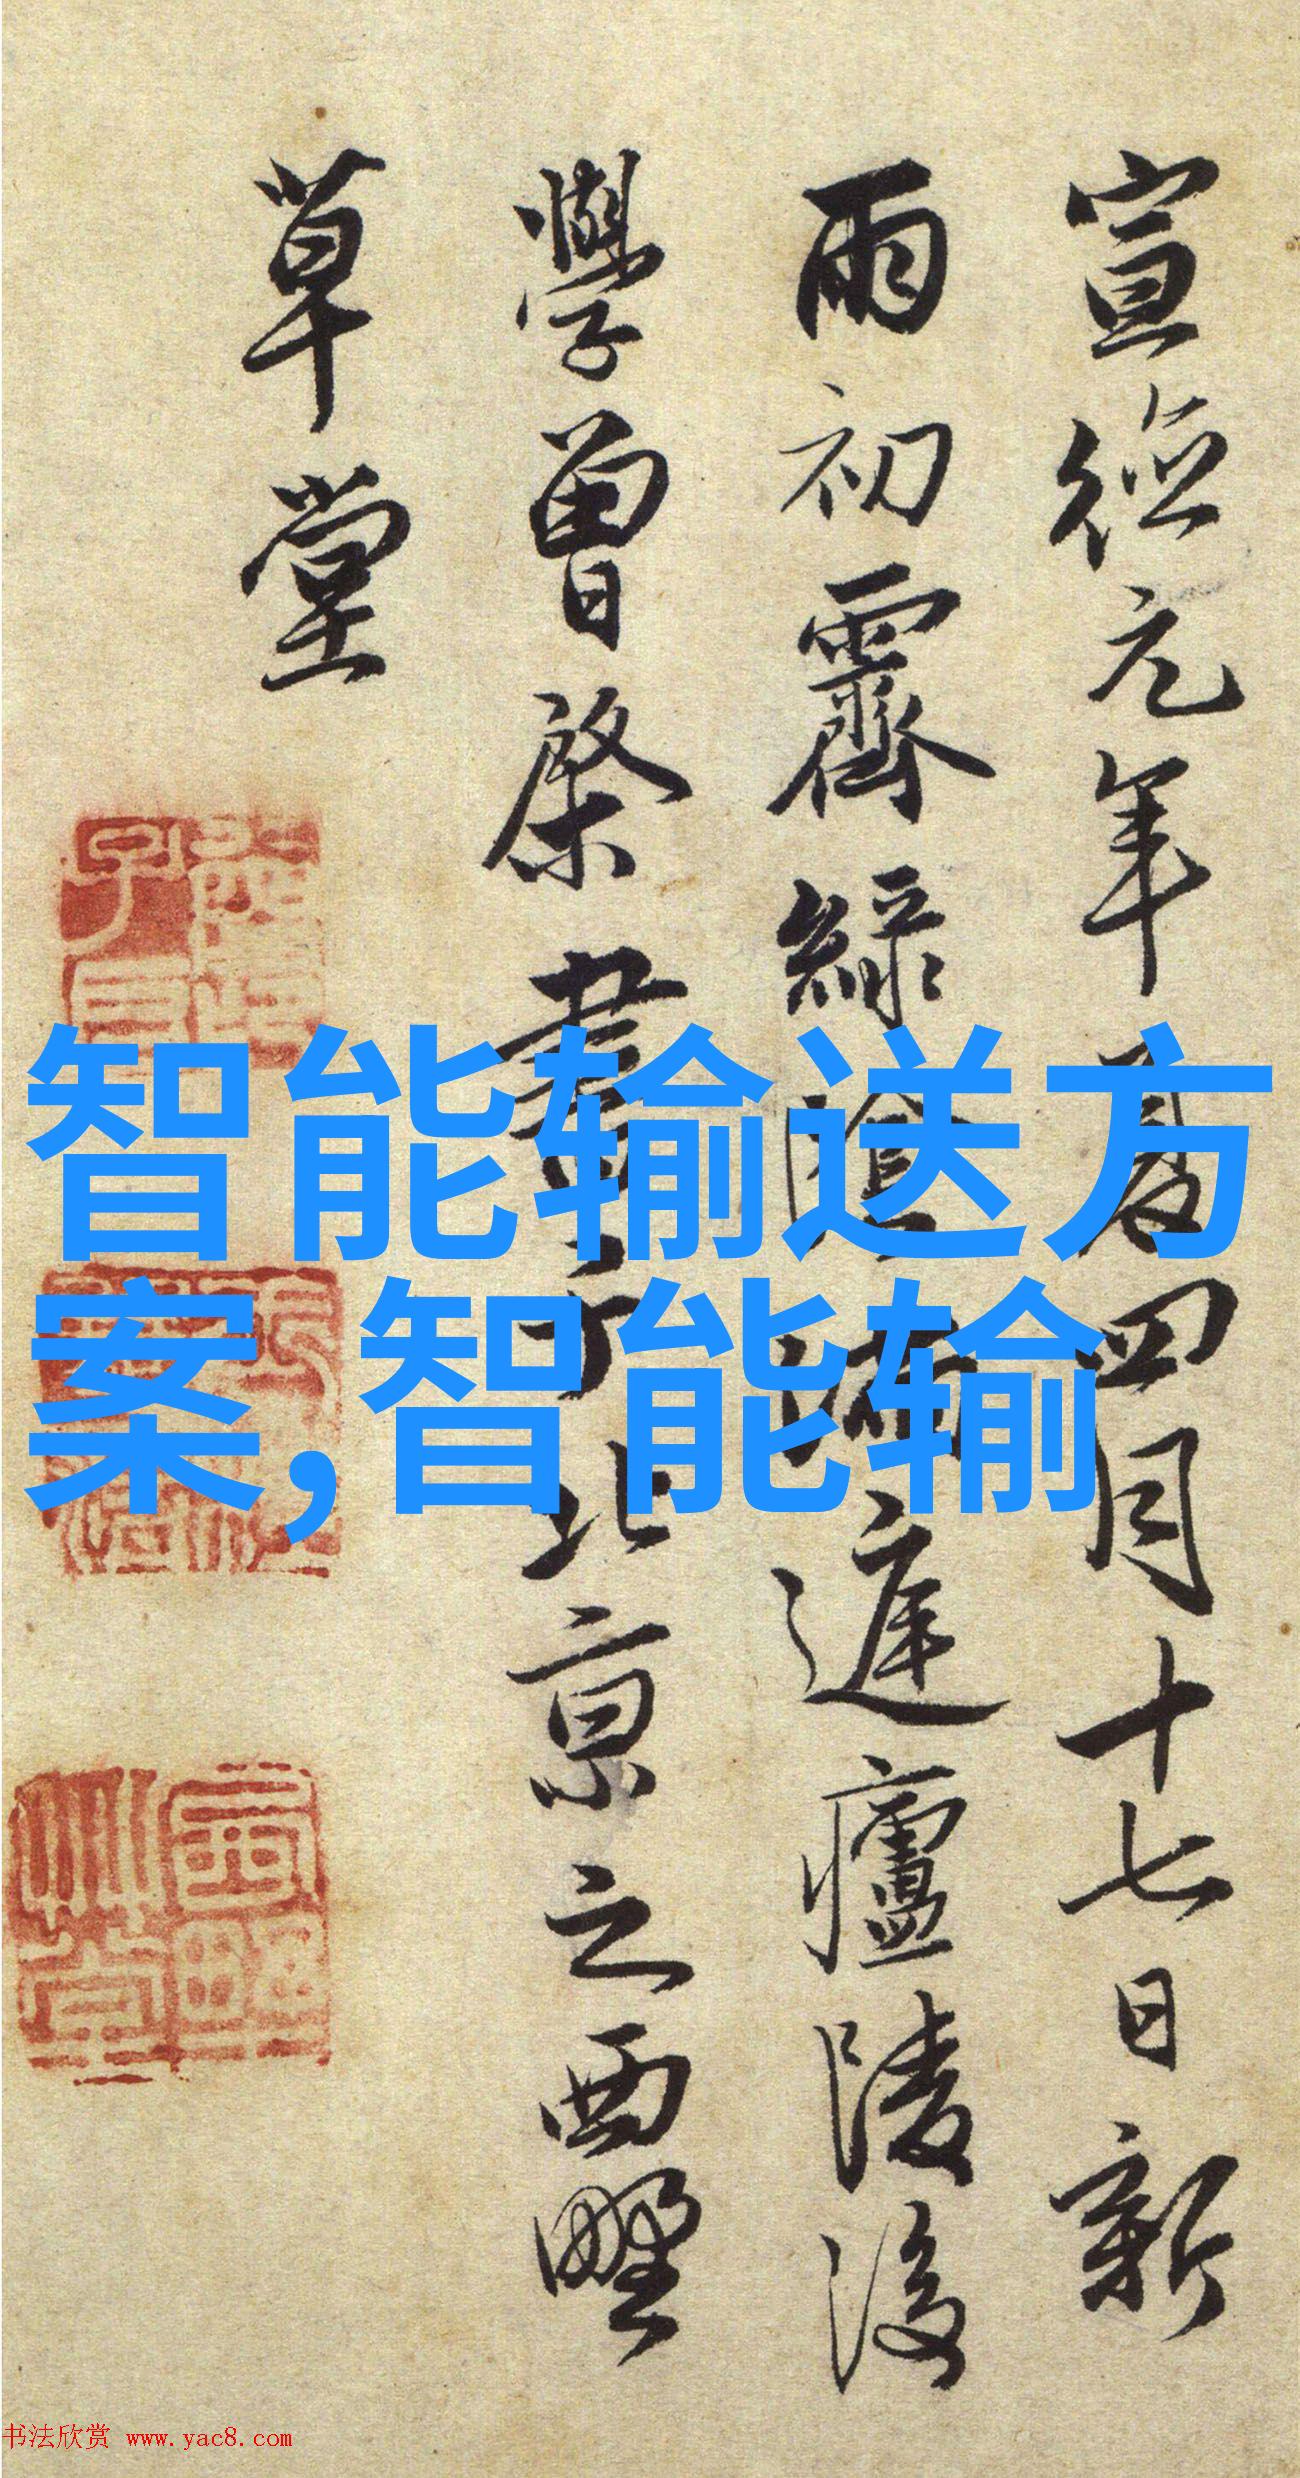 宣德元年夏四月十七日新
雨初霽綠陰滿廬陵後
學曾棨書于北京之西墅
草堂
智能输送方
案,智能输
书法欣赏 www.yac8.com